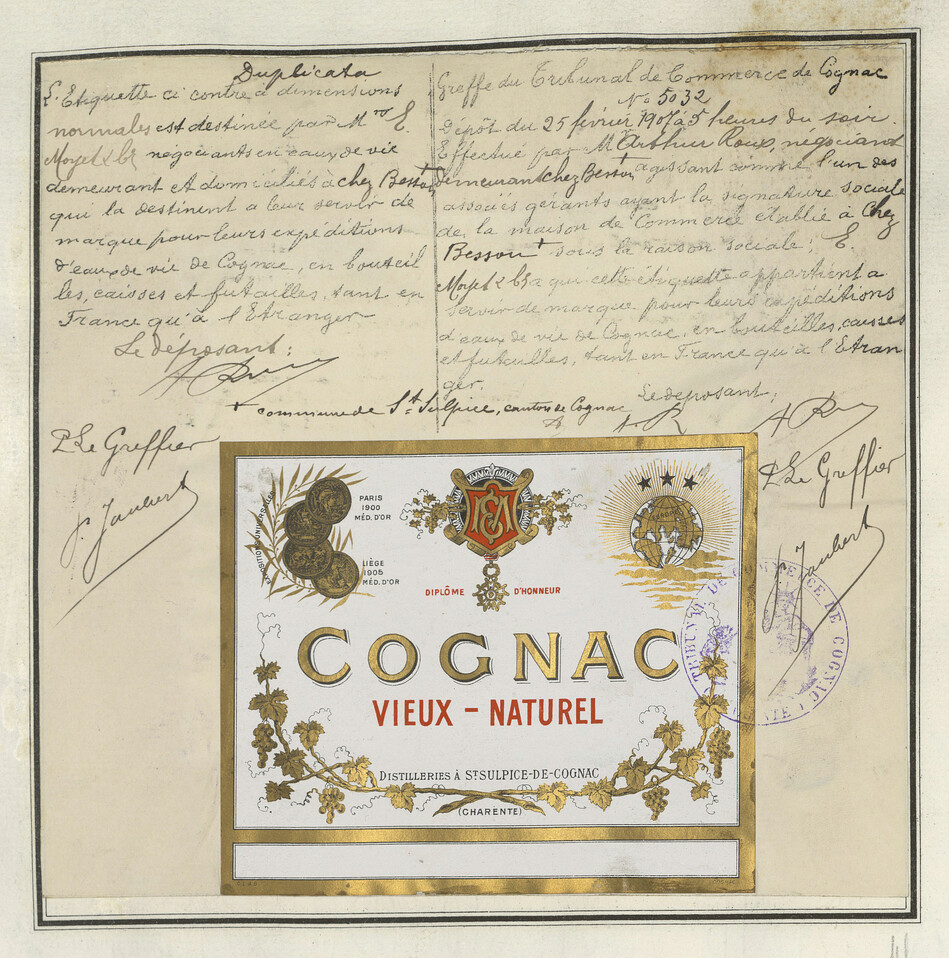 Duplicata
L'Etiquette ci contre a dimensions
normales est destinée par Mrs E.
Moyet & Cie négociants en eaux de vie
demeurant et domiciliés à chez Besson +
qui la destinent a leur servir de
marque pour leurs expéditions
d'eaux de vie de Cognac, en bouteil
les, caisses et futailles, tant en
France qu'à l'Etranger
Le déposant:
Greffe du Tribunal de Commerce de Cognac
No 5032
Dépôt du 25 février 1907 à 5 heures du soir.
Effectué par M. Arthur Roux, négociant
demeurant chez Besson + agissant comme l'un des
associés gérants ayant la signature sociale
de la maison de Commerce établie à chez
Besson + sous la raison sociale: E.
Moyet & Cie a qui cette étiquette appartient a
servir de marque pour leurs expéditions
d'eaux de vie de Cognac, en bouteilles, caisses
et futailles, tant en France qu'à l'Etran
ger.
Le déposant,
+ commune de St Sulpice, canton de Cognac
P Le Greffier
P. Jaubert
P Le Greffier
P. Jaubert
EXPOSITIONS UNIVERSELLES
PARIS
1900
MÉD. D'OR
LIÈGE
1905
MÉD. D'OR
DIPLÔME D'HONNEUR
COGNAC
VIEUX - NATUREL
DISTILLERIES À ST SULPICE-DE-COGNAC
(CHARENTE)
TRIBUNAL DE COMMERCE DE COGNAC